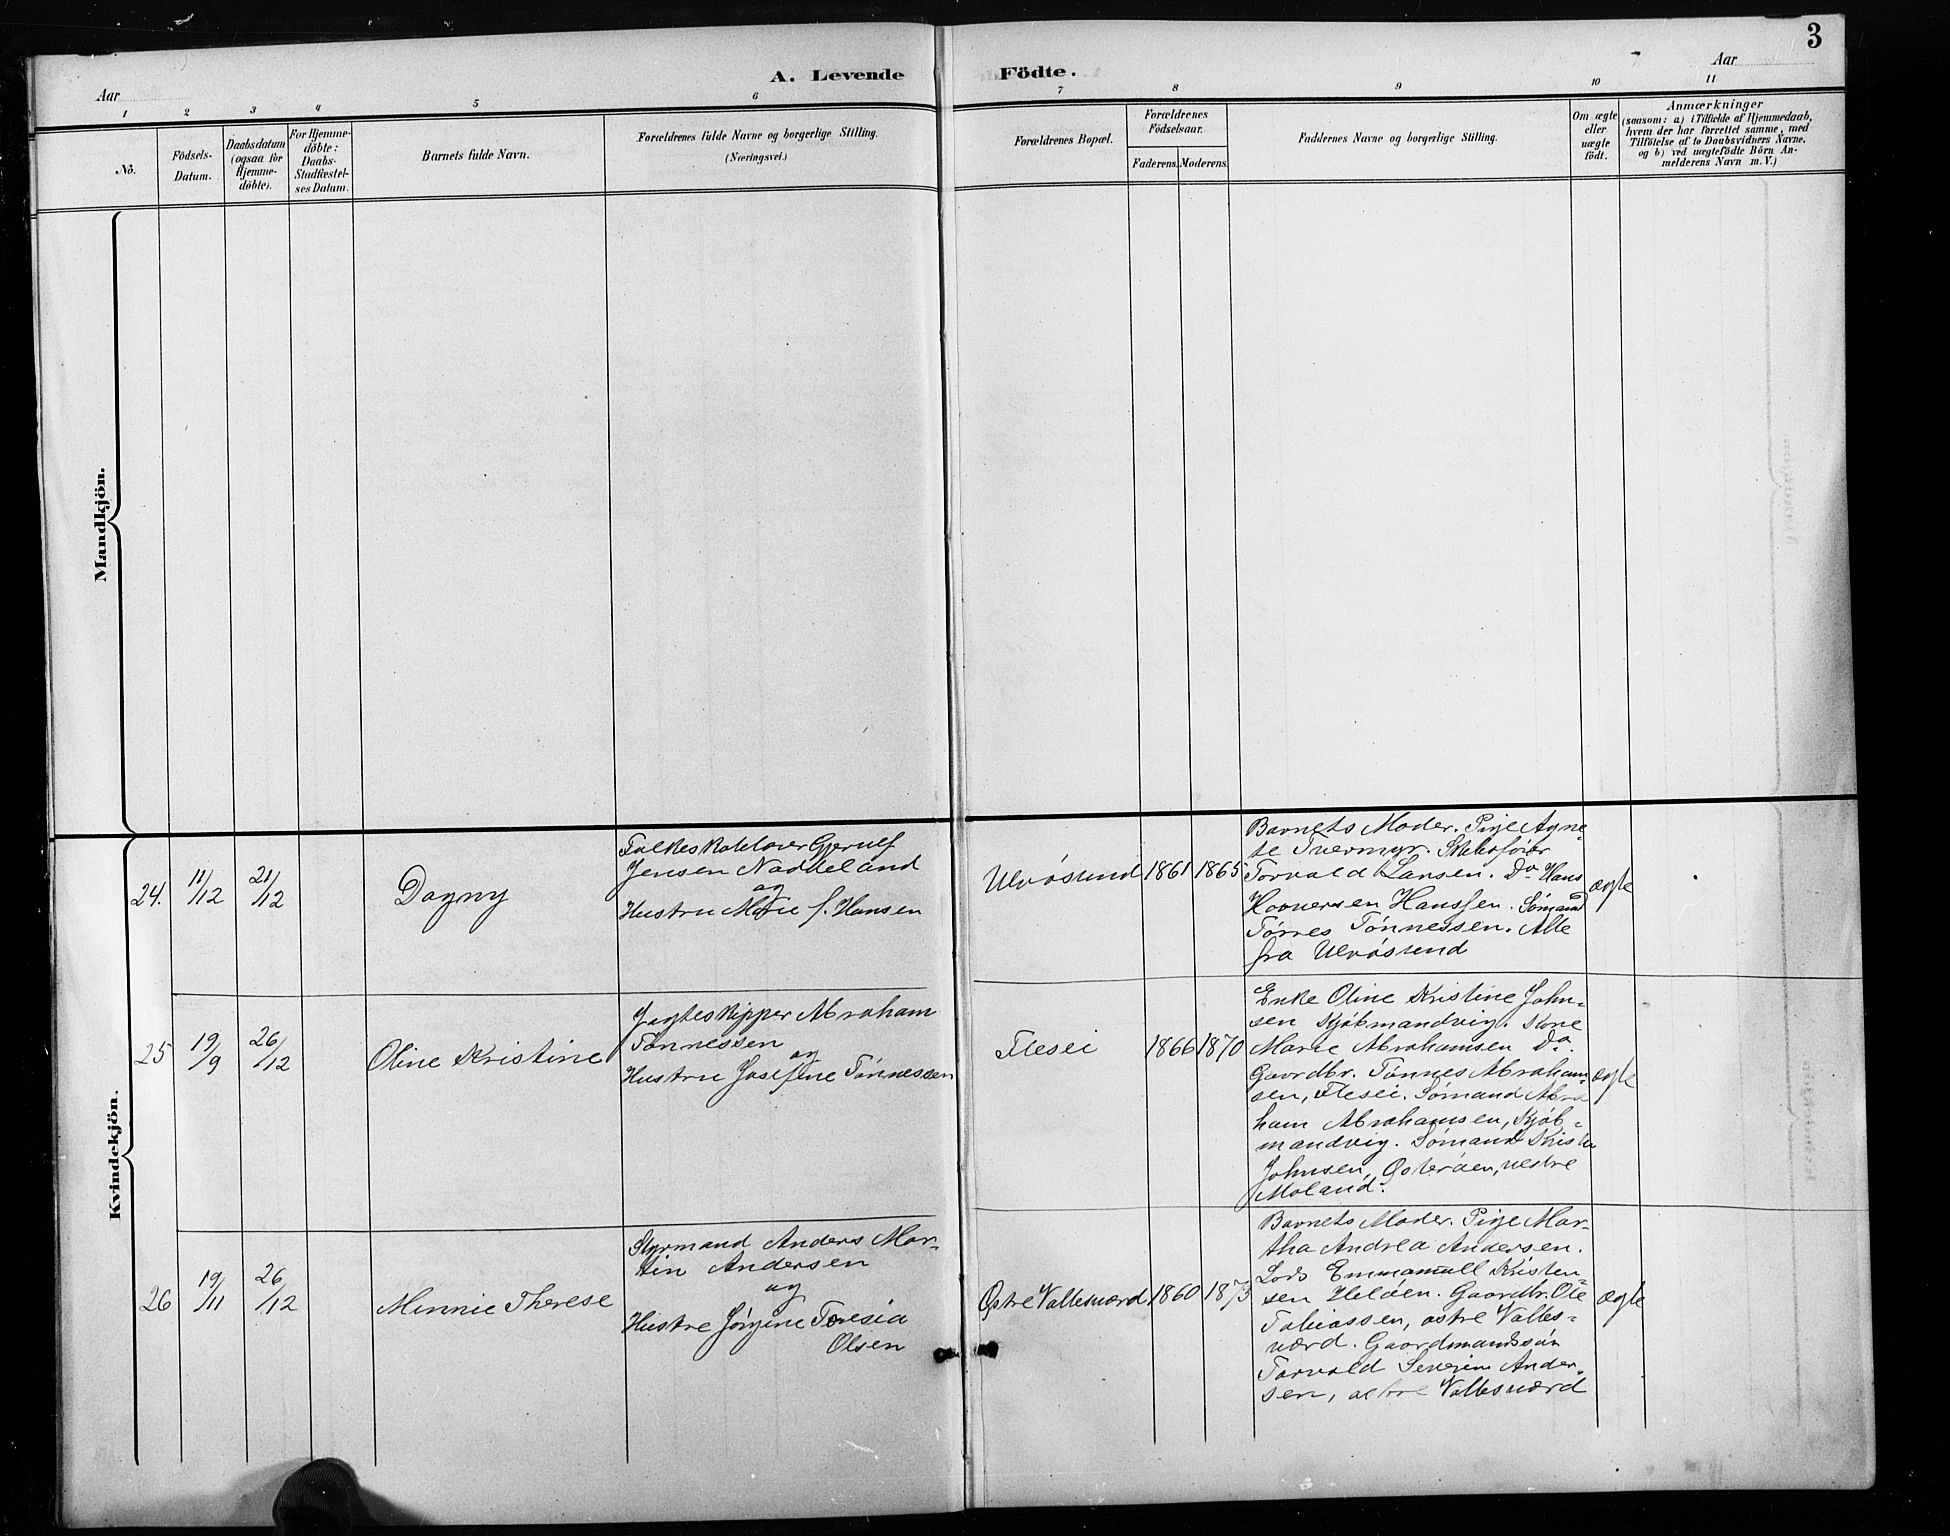 3
A. Levende Födte.
Aar
Aar
1 2 3 4 5 6 7 8 9 10 11
No.
Födsels-
Datum.
Daabsdatum
(ogsaa for
Hjemme-
döbte).
For Hjemme-
döbte:
Daabs-
Stadfæstel-
ses Datum.
Barnets fulde Navn.
Forældrenes fulde Navne og borgerlige Stilling.
(Næringsvei.)
Forældrenes Bopæl.
Forældrenes
Födselsaar.
Faderens. Moderens.
Faddernes Navne og borgerlige Stilling.
Om ægte
eller
uægte
födt.
Anmærkninger
(saasom: a) i Tilfælde af Hjemmedaab,
hvem der har forrettet samme, med
Tilföielse af to Daabsvidners Navne.
og b) ved uægtefödte Börn An-
melderens Navn m. V.)
Mandkjön.
Kvindekjön.
24.
11/12
21/12
Dagny
Jensen Naddeland
og
Hustru Marie f. Hansen
Ulvøsund
1861
1865
Barnets Moder. Pige Agne-
te Tvermyr.
Torvald Larsen. Do Hans
Hansen. Sømand
Tørres Tønnessen. Alle
fra Ulvøsund
ægte
25
19/9
26/12
Oline Kristine
Jagteskipper Abraham
Tønnessen
og
Hustru Josefine Tønnessen
Flesei
1866
1870
Enke Oline Kristine John-
sen Kjøbmandvig. Kone
Marie Abrahamsen Do.
Gaardbr. Tønnes Abraham-
sen, Flesei. Sømand Abra
ham Abrahamsen, Kjøb-
mandvig. Sømand
Johnsen, Osterøen, vestre
Moland.
ægte
26
19/11
26/12
Minnie Therese
Styrmand Anders Mar-
tin Andersen
og
Hustru Jørgine Teresia
Olsen
Østre Vallesværd
1860
1873
Barnets Moder. Pige Mar-
tha Andrea Andersen.
Lods Emmanuell Kristen-
sen Heløen. Gaardbr. Ole
Tobiassen, østre Valles-
værd. Gaardmandssøn
Torvald Severin Ander-
sen, østre Vallesværd
ægte